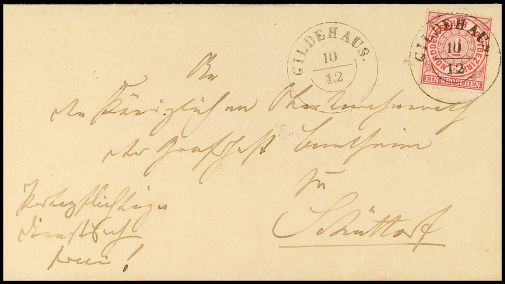 GILDEHAUS.
10
12
GILDEHAUS.
10
12
EIN GROSCHEN
An
den Fürstlichen
der Grafschaft Bentheim
zu
Schüttorf
Portopflichtige
Dienstsache
frei!